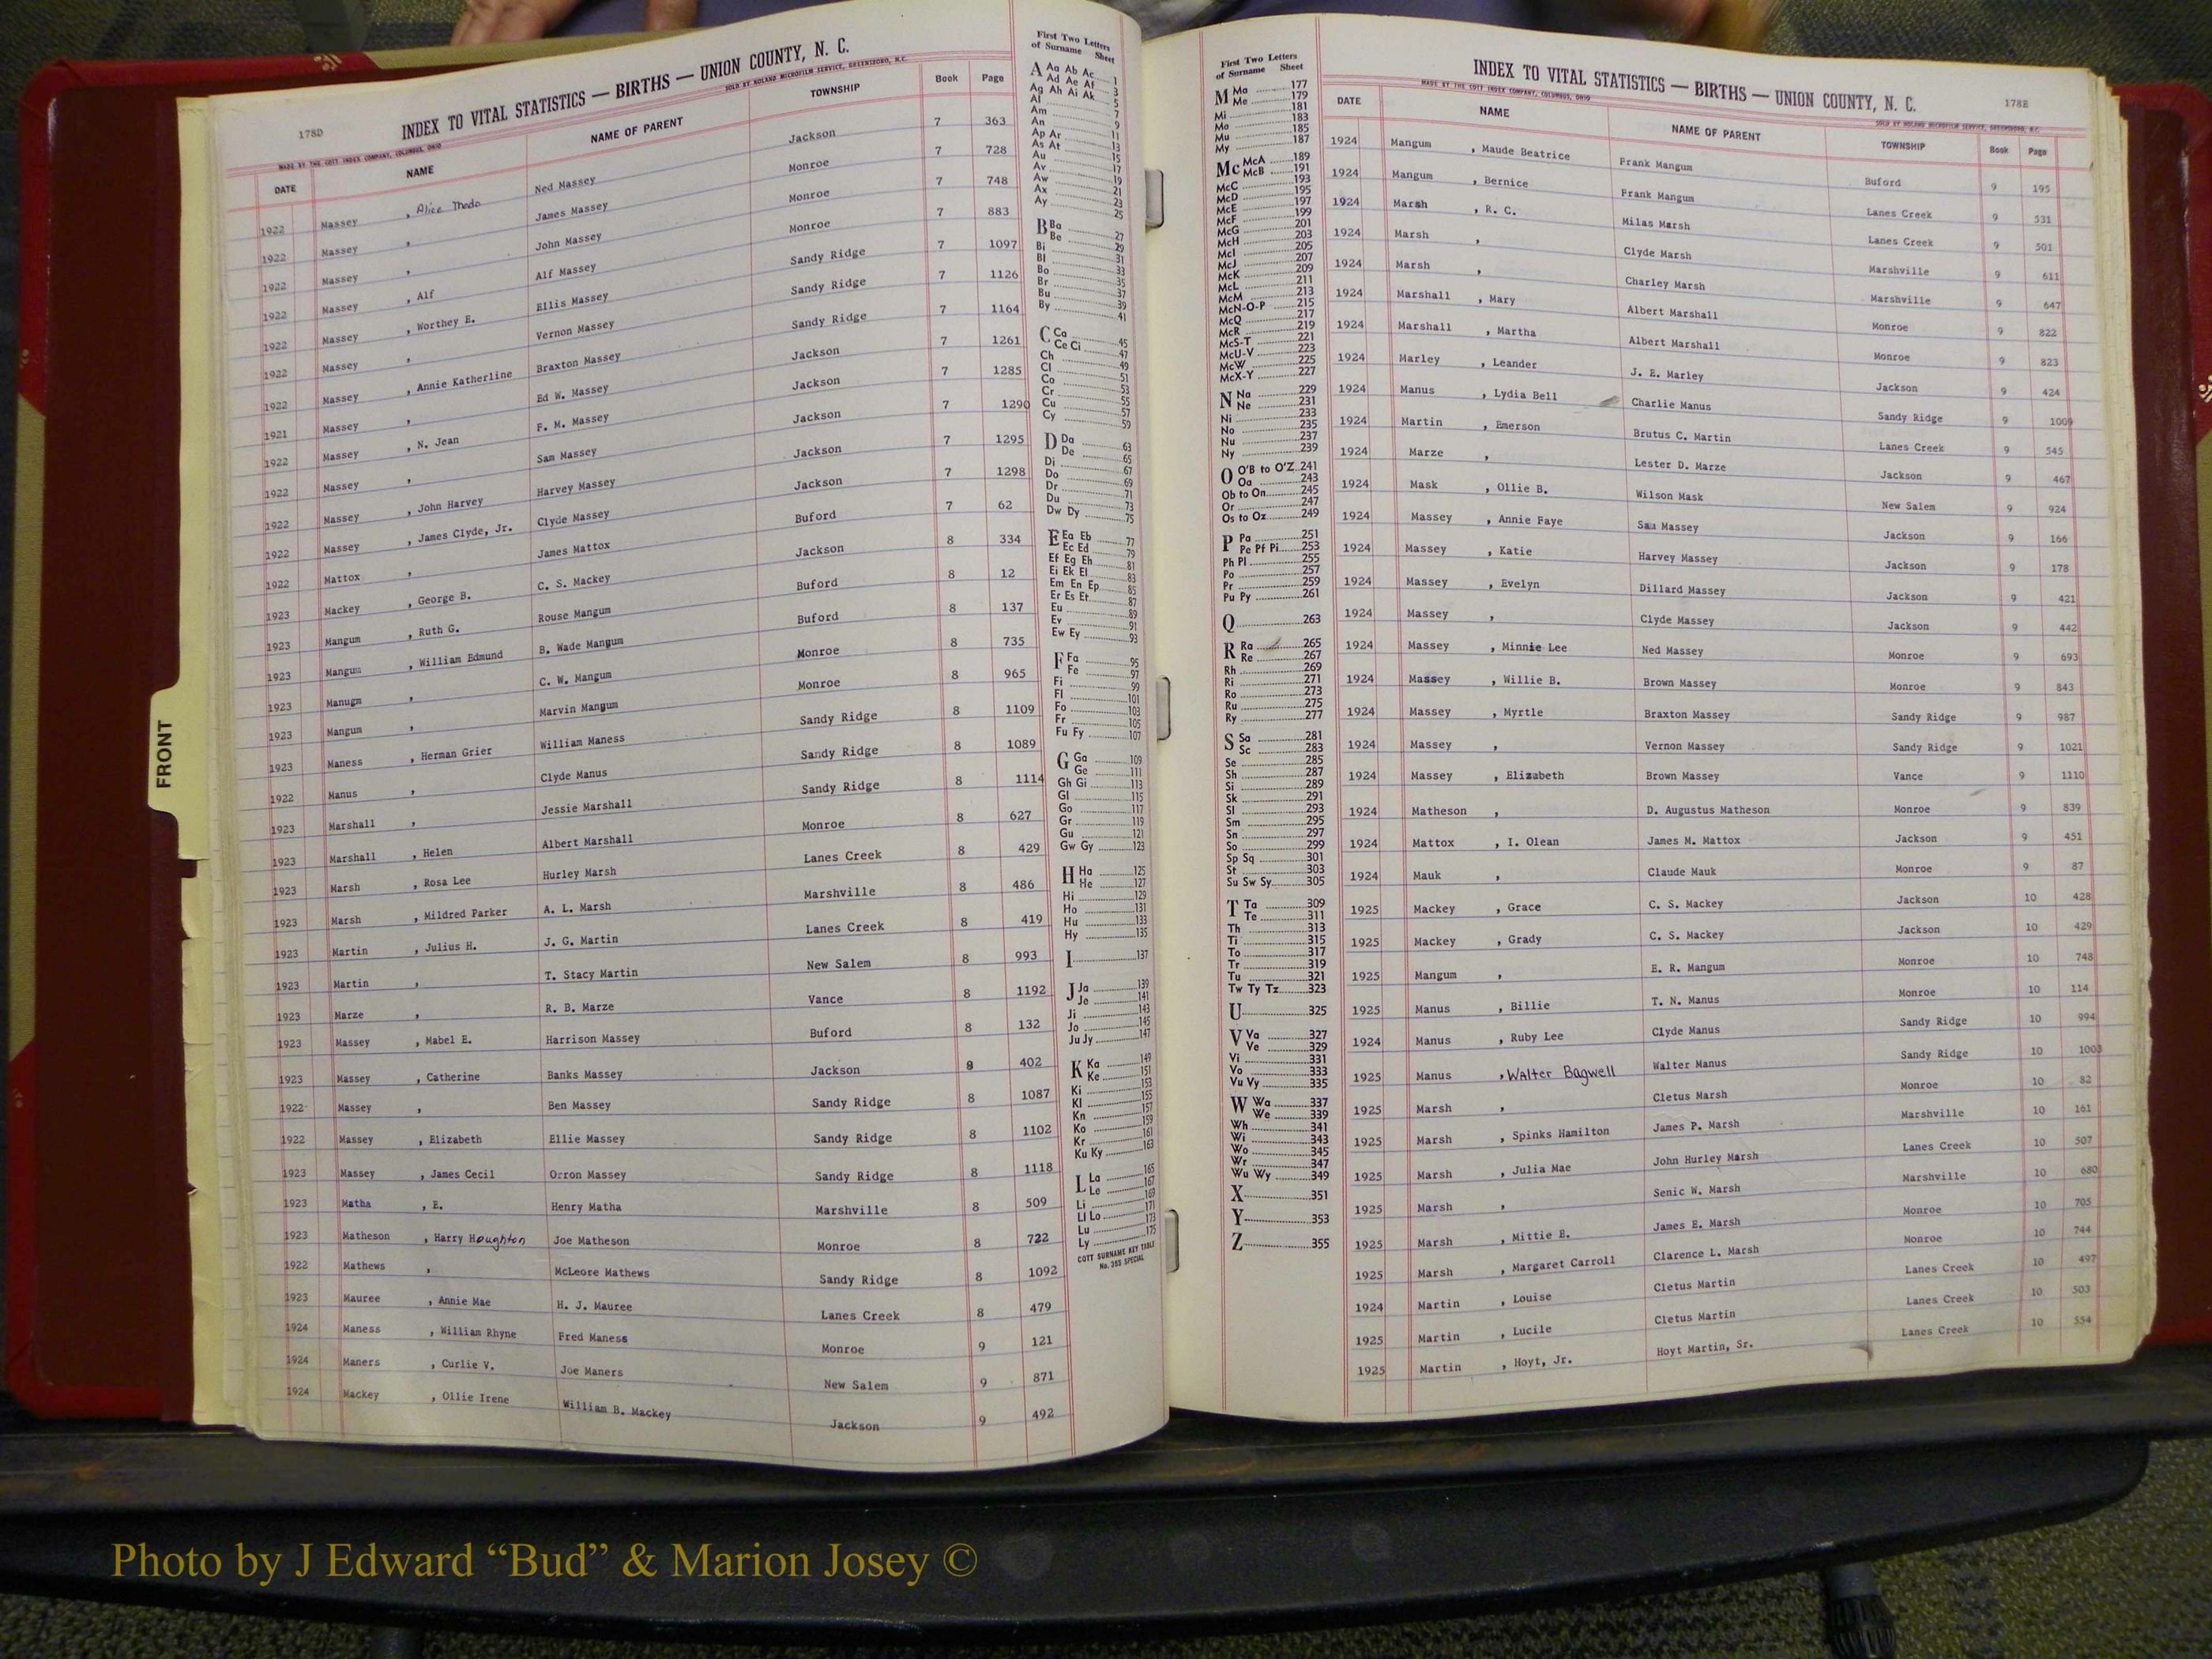 178D
INDEX TO VITAL STATISTICS — BIRTHS — UNION COUNTY, N. C.
MADE BY THE COTT INDEX COMPANY, COLUMBUS, OHIO SOLD BY NOLAND MICROFILM SERVICE, GREENSBORO, N.C.
DATE NAME NAME OF PARENT TOWNSHIP Book Page
1922 Massey , Alice Meda Ned Massey Jackson 7 363
1922 Massey , James Massey Monroe 7 728
1922 Massey , John Massey Monroe 7 748
1922 Massey , Alf Alf Massey Monroe 7 883
1922 Massey , Worthey E. Ellis Massey Sandy Ridge 7 1097
1922 Massey , Vernon Massey Sandy Ridge 7 1126
1922 Massey , Annie Katherline Braxton Massey Sandy Ridge 7 1164
1921 Massey , Ed W. Massey Jackson 7 1261
1922 Massey , N. Jean F. M. Massey Jackson 7 1285
1922 Massey , Sam Massey Jackson 7 1290
1922 Massey , John Harvey Harvey Massey Jackson 7 1295
1922 Massey , James Clyde, Jr. Clyde Massey Jackson 7 1298
1922 Mattox , James Mattox Buford 7 62
1923 Mackey , George B. C. S. Mackey Jackson 8 334
1923 Mangum , Ruth G. Rouse Mangum Buford 8 12
1923 Mangum , William Edmund B. Wade Mangum Buford 8 137
1923 Manugm , C. W. Mangum Monroe 8 735
1923 Mangum , Marvin Mangum Monroe 8 965
1923 Maness , Herman Grier William Maness Sandy Ridge 8 1109
1922 Manus , Clyde Manus Sandy Ridge 8 1089
1923 Marshall , Jessie Marshall Sandy Ridge 8 1114
1923 Marshall , Helen Albert Marshall Monroe 8 627
1923 Marsh , Rosa Lee Hurley Marsh Lanes Creek 8 429
1923 Marsh , Mildred Parker A. L. Marsh Marshville 8 486
1923 Martin , Julius H. J. G. Martin Lanes Creek 8 419
1923 Martin , T. Stacy Martin New Salem 8 993
1923 Marze , R. B. Marze Vance 8 1192
1923 Massey , Mabel E. Harrison Massey Buford 8 132
1923 Massey , Catherine Banks Massey Jackson 8 402
1922 Massey , Ben Massey Sandy Ridge 8 1087
1922 Massey , Elizabeth Ellie Massey Sandy Ridge 8 1102
1923 Massey , James Cecil Orron Massey Sandy Ridge 8 1118
1923 Matha , E. Henry Matha Marshville 8 509
1923 Matheson , Harry Houghton Joe Matheson Monroe 8 722
1922 Mathews , McLeore Mathews Sandy Ridge 8 1092
1923 Mauree , Annie Mae H. J. Mauree Lanes Creek 8 479
1924 Maness , William Rhyne Fred Maness Monroe 9 121
1924 Maners , Curlie V. Joe Maners New Salem 9 871
1924 Mackey , Ollie Irene William B. Mackey Jackson 9 492
FRONT
First Two Letters
of Surname Sheet
A Aa Ab Ac 1
Ad Ae Af 3
Ag Ah Ai Ak 5
Al 7
Am 9
An
Ap Ar 11
As At 13
Au 15
Av 17
Aw 19
Ax 21
Ay 23
25
B Ba 27
Be 29
Bi 31
Bl 33
Bo 35
Br 37
Bu 39
By 41
C Ca 45
Ce Ci 47
Ch 49
Cl 51
Co 53
Cr 55
Cu 57
Cy 59
D Da 63
De 65
Di 67
Do 69
Dr 71
Du 73
Dw Dy 75
E Ea Eb 77
Ec Ed 79
Ef Eg Eh 81
Ei Ek El 83
Em En Ep 85
Er Es Et 87
Eu 89
Ev 91
Ew Ey 93
F Fa 95
Fe 97
Fi 99
Fl 101
Fo 103
Fr 105
Fu Fy 107
G Ga 109
Ge 111
Gh Gi 113
Gl 115
Go 117
Gr 119
Gu 121
Gw Gy 123
H Ha 125
He 127
Hi 129
Ho 131
Hu 133
Hy 135
I 137
J Ja 139
Je 141
Ji 143
Jo 145
Ju Jy 147
K Ka 149
Ke 151
Ki 153
Kl 155
Kn 157
Ko 159
Kr 161
Ku Ky 163
L La 165
Le 167
Li 169
Ll Lo 171
Lu 173
Ly 175
COTT SURNAME KEY TABLE
No. 355 SPECIAL
First Two Letters
of Surname Sheet
M Ma 177
Me 179
Mi 181
Mo 183
Mu 185
My 187
Mc McA 189
McB 191
McC 193
McD 195
McE 197
McF 199
McG 201
McH 203
McI 205
McJ 207
McK 209
McL 211
McM 213
McN-O-P 215
McQ 217
McR 219
McS-T 221
McU-V 223
McW 225
McX-Y 227
N Na 229
Ne 231
Ni 233
No 235
Nu 237
Ny 239
O O'B to O'Z 241
Oa 243
Ob to On 245
Or 247
Os to Oz 249
P Pa 251
Pe Pf Pi 253
Ph Pl 255
Po 257
Pr 259
Pu Py 261
Q 263
R Ra 265
Re 267
Rh 269
Ri 271
Ro 273
Ru 275
Ry 277
S Sa 281
Sc 283
Se 285
Sh 287
Si 289
Sk 291
Sl 293
Sm 295
Sn 297
So 299
Sp Sq 301
St 303
Su Sw Sy 305
T Ta 309
Te 311
Th 313
Ti 315
To 317
Tr 319
Tu 321
Tw Ty Tz 323
U 325
V Va 327
Ve 329
Vi 331
Vo 333
Vu Vy 335
W Wa 337
We 339
Wh 341
Wi 343
Wo 345
Wr 347
Wu Wy 349
X 351
Y 353
Z 355
INDEX TO VITAL STATISTICS — BIRTHS — UNION COUNTY, N. C.
178E
MADE BY THE COTT INDEX COMPANY, COLUMBUS, OHIO SOLD BY NOLAND MICROFILM SERVICE, GREENSBORO, N.C.
DATE NAME NAME OF PARENT TOWNSHIP Book Page
1924 Mangum , Maude Beatrice Frank Mangum Buford 9 195
1924 Mangum , Bernice Frank Mangum Lanes Creek 9 531
1924 Marsh , R. C. Milas Marsh Lanes Creek 9 501
1924 Marsh , Clyde Marsh Marshville 9 611
1924 Marsh , Charley Marsh Marshville 9 647
1924 Marshall , Mary Albert Marshall Monroe 9 822
1924 Marshall , Martha Albert Marshall Monroe 9 823
1924 Marley , Leander J. E. Marley Jackson 9 424
1924 Manus , Lydia Bell Charlie Manus Sandy Ridge 9 1009
1924 Martin , Emerson Brutus C. Martin Lanes Creek 9 545
1924 Marze , Lester D. Marze Jackson 9 467
1924 Mask , Ollie B. Wilson Mask New Salem 9 924
1924 Massey , Annie Faye Sam Massey Jackson 9 166
1924 Massey , Katie Harvey Massey Jackson 9 178
1924 Massey , Evelyn Dillard Massey Jackson 9 421
1924 Massey , Clyde Massey Jackson 9 442
1924 Massey , Minnie Lee Ned Massey Monroe 9 693
1924 Massey , Willie B. Brown Massey Monroe 9 843
1924 Massey , Myrtle Braxton Massey Sandy Ridge 9 987
1924 Massey , Vernon Massey Sandy Ridge 9 1021
1924 Massey , Elizabeth Brown Massey Vance 9 1110
1924 Matheson , D. Augustus Matheson Monroe 9 839
1924 Mattox , I. Olean James M. Mattox Jackson 9 451
1924 Mauk , Claude Mauk Monroe 9 87
1925 Mackey , Grace C. S. Mackey Jackson 10 428
1925 Mackey , Grady C. S. Mackey Jackson 10 429
1925 Mangum , E. R. Mangum Monroe 10 748
1925 Manus , Billie T. N. Manus Monroe 10 114
1924 Manus , Ruby Lee Clyde Manus Sandy Ridge 10 994
1925 Manus , Walter Bagwell Walter Manus Sandy Ridge 10 1003
1925 Marsh , Cletus Marsh Monroe 10 82
1925 Marsh , Spinks Hamilton James P. Marsh Marshville 10 161
1925 Marsh , Julia Mae John Hurley Marsh Lanes Creek 10 507
1925 Marsh , Senic W. Marsh Marshville 10 680
1925 Marsh , Mittie E. James E. Marsh Monroe 10 705
1925 Marsh , Margaret Carroll Clarence L. Marsh Monroe 10 744
1924 Martin , Louise Cletus Martin Lanes Creek 10 497
1925 Martin , Lucile Cletus Martin Lanes Creek 10 503
1925 Martin , Hoyt, Jr. Hoyt Martin, Sr. Lanes Creek 10 554
Photo by J Edward “Bud” & Marion Josey ©